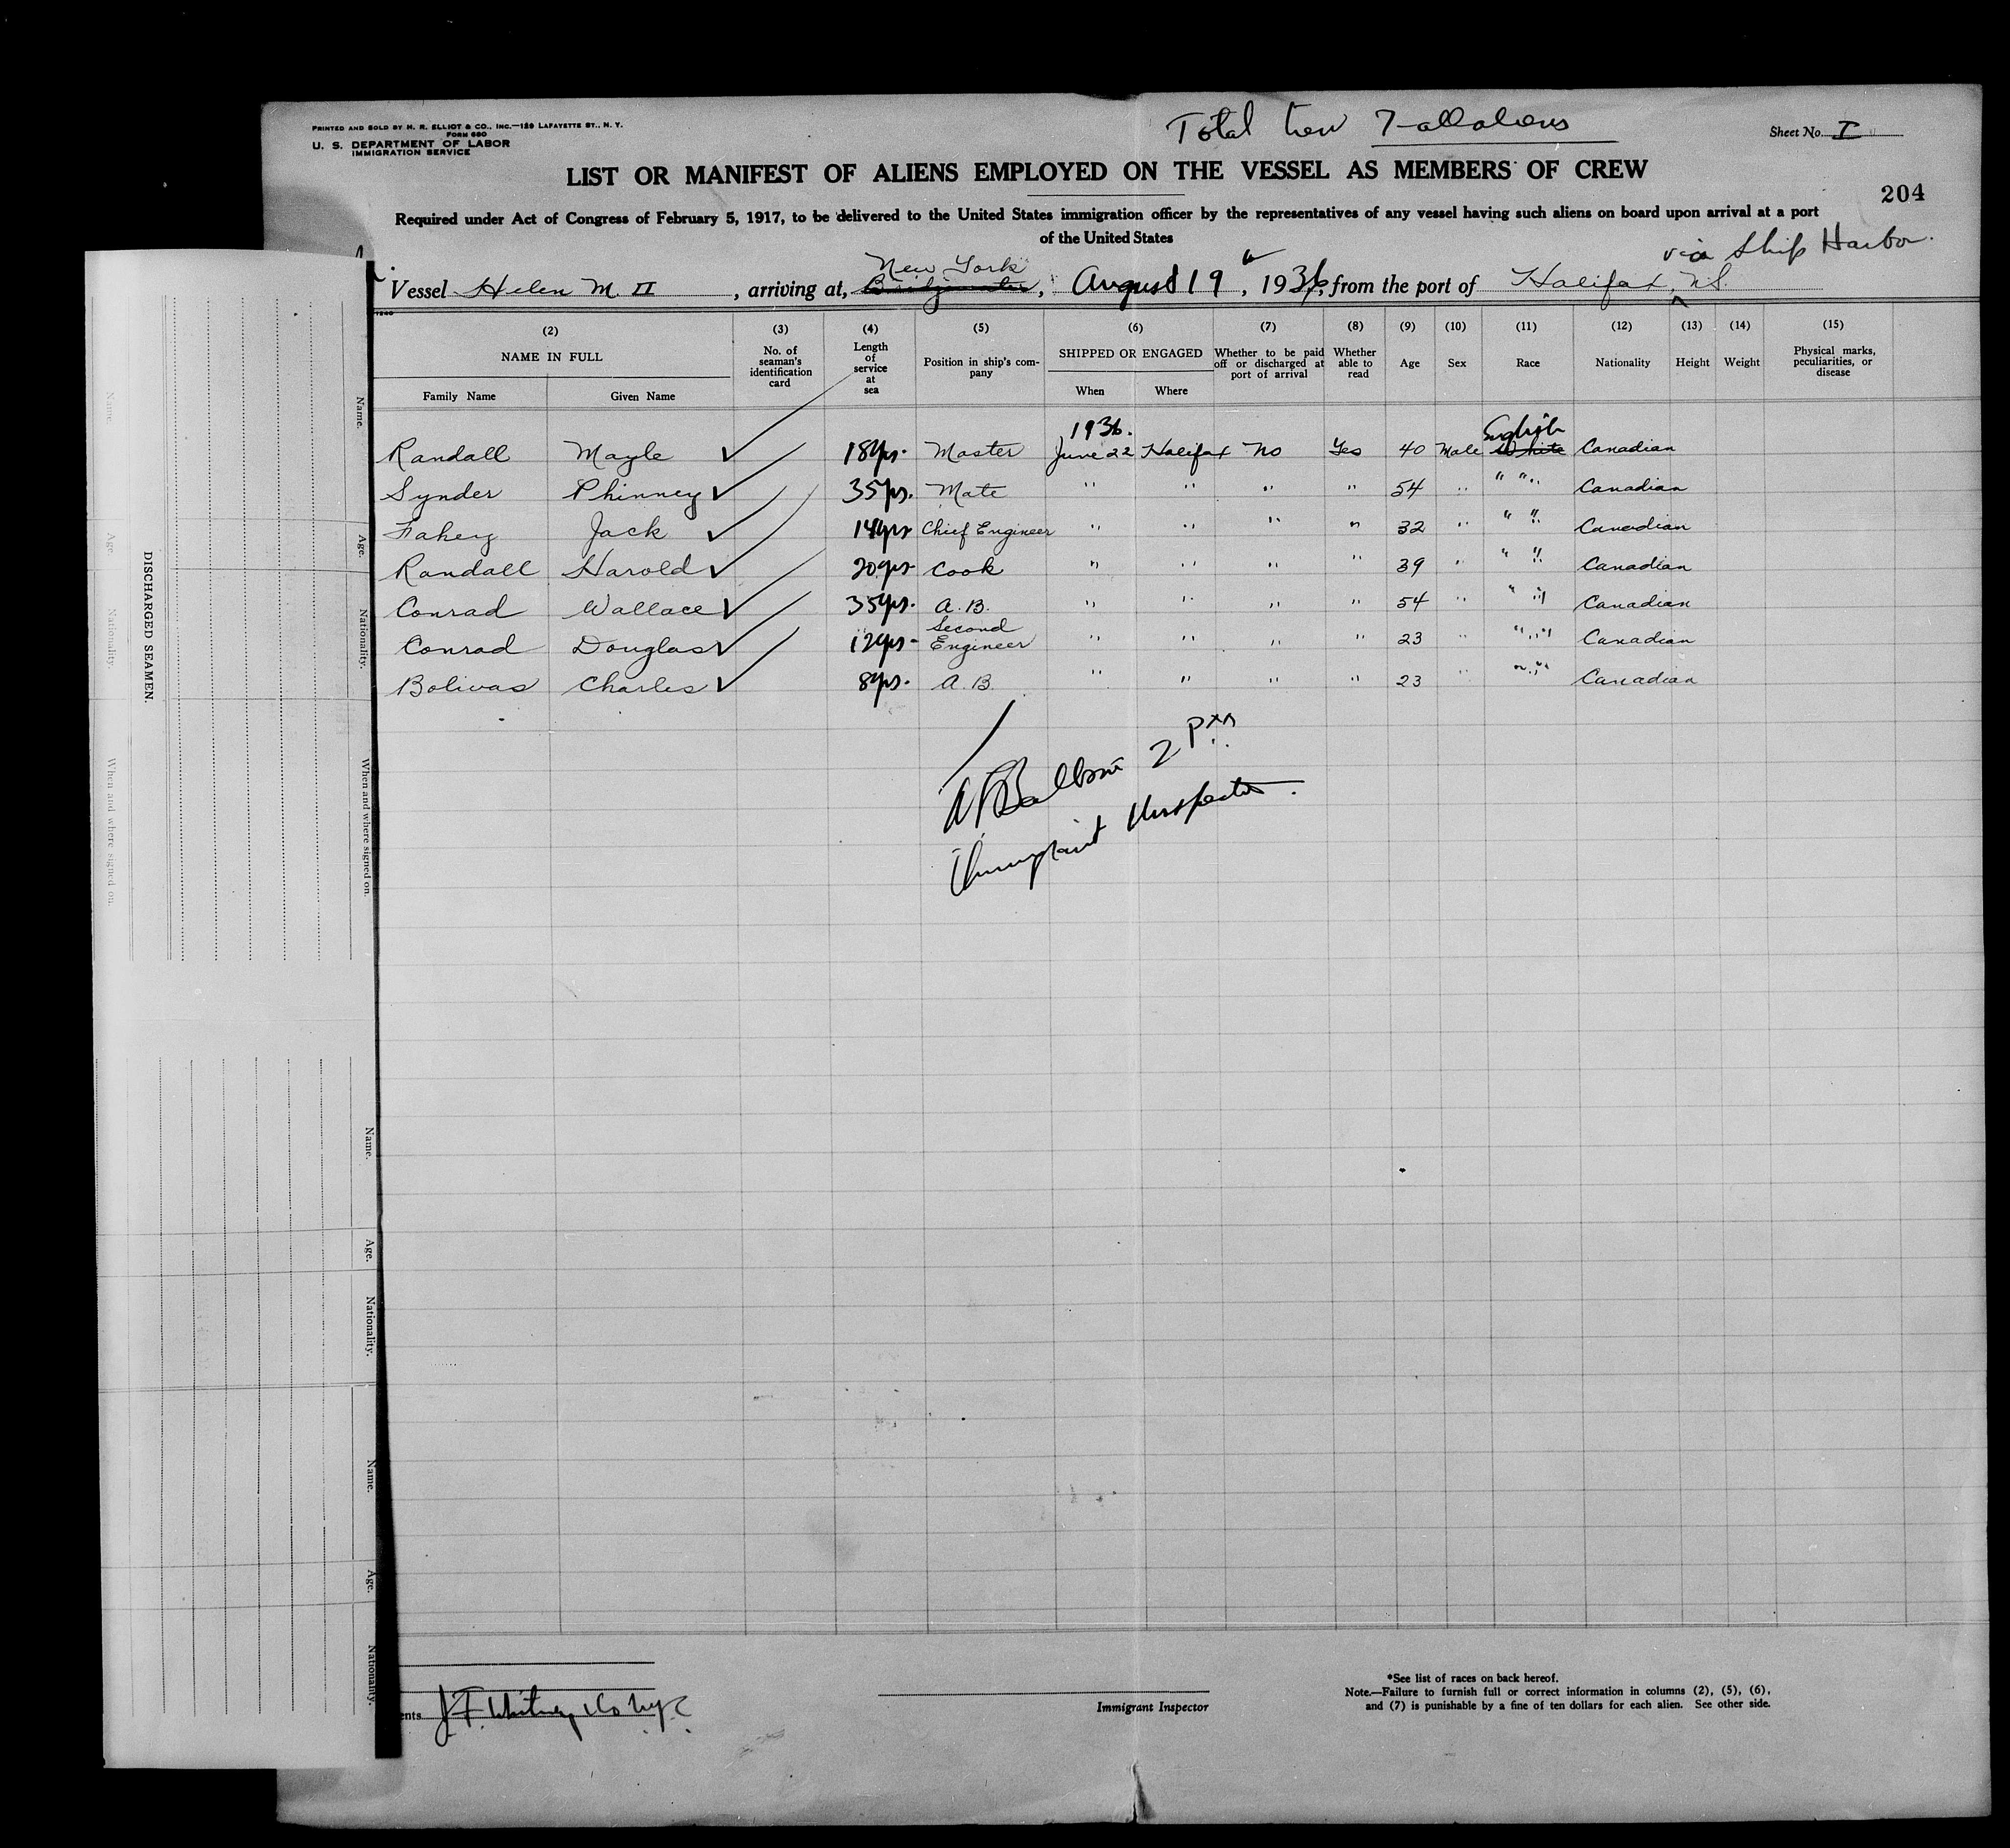 PRINTED AND SOLD BY H. R. ELLIOT & CO., INC.—129 LAFAYETTE ST., N. Y.
FORM 680
U. S. DEPARTMENT OF LABOR
IMMIGRATION SERVICE
Total Crew 7 - all aliens
Sheet No. I
LIST OR MANIFEST OF ALIENS EMPLOYED ON THE VESSEL AS MEMBERS OF CREW
204
Required under Act of Congress of February 5, 1917, to be delivered to the United States immigration officer by the representatives of any vessel having such aliens on board upon arrival at a port
of the United States
via Ship Harbor.
New York
Vessel Helen M. II, arriving at, Bridgewater, August 19, 1936, from the port of Halifax, N.S.
(2) (3) (4) (5) (6) (7) (8) (9) (10) (11) (12) (13) (14) (15)
NAME IN FULL
Family Name Given Name
No. of seaman's identification card
Length of service at sea
Position in ship's company
SHIPPED OR ENGAGED
When Where
Whether to be paid off or discharged at port of arrival
Whether able to read
Age
Sex
Race
Nationality
Height
Weight
Physical marks, peculiarities, or disease
1936. English
Randall Mayle ✓ 18yrs. Master June 22 Halifax No Yes 40 Male White Canadian
Synder Phinney ✓ 35yrs. Mate " " " " 54 " " " Canadian
Fahey Jack ✓ 14yrs Chief Engineer " " " " 32 " " " Canadian
Randall Harold ✓ 20yrs Cook " " " " 39 " " " Canadian
Conrad Wallace ✓ 35yrs. A.B. " " " " 54 " " " Canadian
Conrad Douglas ✓ 12yrs- Second Engineer " " " " 23 " " " Canadian
Bolivas Charles ✓ 8yrs. A.B. " " " " 23 " " " Canadian
Immigrant Inspector.
DISCHARGED SEAMEN.
Name.
Age.
Nationality.
When and where signed on.
Name.
Age.
Nationality.
When and where signed on.
Name.
Age.
Nationality.
Name.
Age.
Nationality.
ents J. F. Whitney & Co N.Y.C
Immigrant Inspector
*See list of races on back hereof.
Note.—Failure to furnish full or correct information in columns (2), (5), (6),
and (7) is punishable by a fine of ten dollars for each alien. See other side.